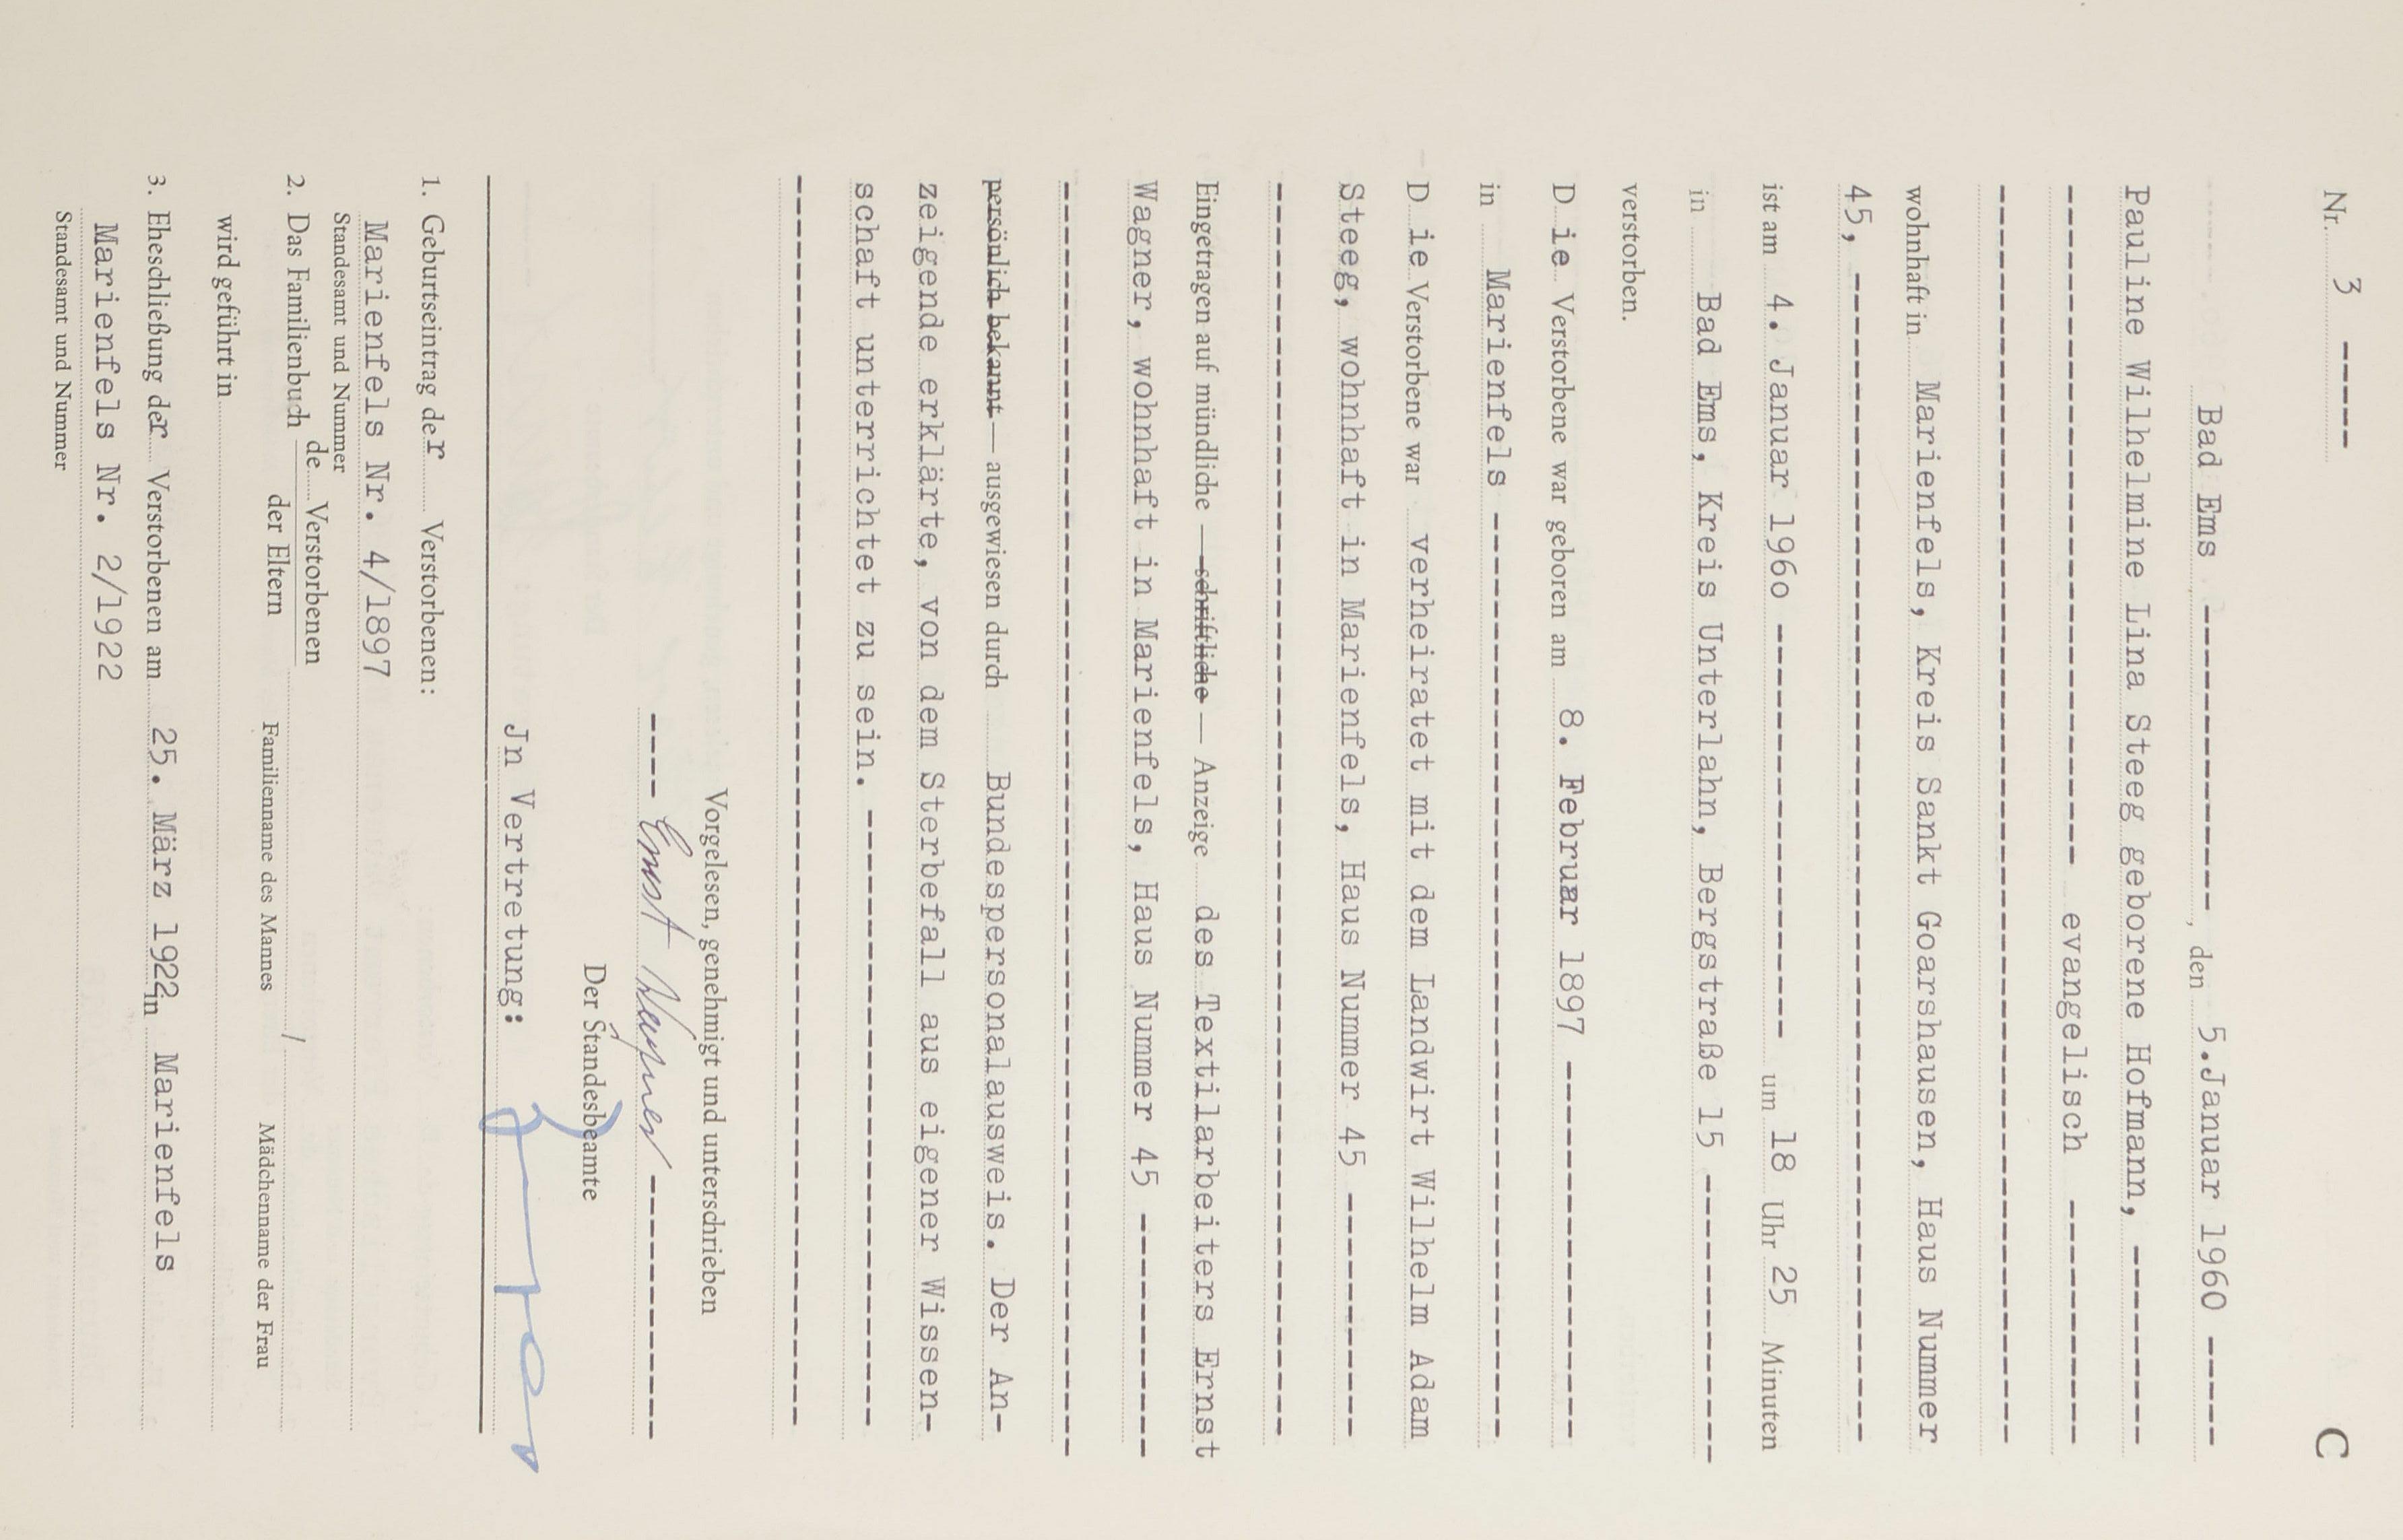 Nr. 3 ----- C
Bad Ems --------------, den 5.Januar 1960 -----
Pauline Wilhelmine Lina Steeg geborene Hofmann, ---------
------------------------------- evangelisch -----------
---------------------------------------------------------
wohnhaft in Marienfels, Kreis Sankt Goarshausen, Haus Nummer
45, -----------------------------------------------------
ist am 4. Januar 1960 ------------------- um 18 Uhr 25 Minuten
in Bad Ems, Kreis Unterlahn, Bergstraße 15 -------------
verstorben.
D ie Verstorbene war geboren am 8. Februar 1897 -----------------
in Marienfels ------------------------------------------
D ie Verstorbene war verheiratet mit dem Landwirt Wilhelm Adam
Steeg, wohnhaft in Marienfels, Haus Nummer 45 -----------
---------------------------------------------------------
Eingetragen auf mündliche — schriftliche — Anzeige des Textilarbeiters Ernst
Wagner, wohnhaft in Marienfels, Haus Nummer 45 -----------
----------------------------------------------------------
persönlich bekannt — ausgewiesen durch Bundespersonalausweis. Der An-
zeigende erklärte, von dem Sterbefall aus eigener Wissen-
schaft unterrichtet zu sein. ----------------------------
---------------------------------------------------------
Vorgelesen, genehmigt und unterschrieben
---- Ernst Wagner ------------
Der Standesbeamte
Jn Vertretung:
1. Geburtseintrag der Verstorbenen:
Marienfels Nr. 4/1897
Standesamt und Nummer
2. Das Familienbuch de Verstorbenen
der Eltern /
Familienname des Mannes Mädchenname der Frau
wird geführt in
3. Eheschließung der Verstorbenen am 25. März 1922 in Marienfels
Marienfels Nr. 2/1922
Standesamt und Nummer